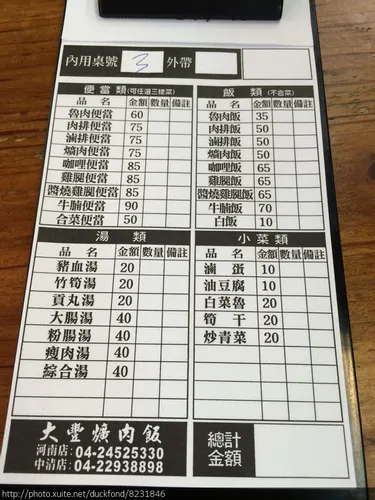 內用桌號 3 外帶
便當類(可任選三樣菜)
品名 金額 數量 備註
魯肉便當 60
肉排便當 75
滷排便當 75
爌肉便當 75
咖哩便當 85
雞腿便當 85
醬燒雞腿便當 85
牛腩便當 90
合菜便當 50
飯類 (不含菜)
品名 金額 數量 備註
魯肉飯 35
肉排飯 50
滷排飯 50
爌肉飯 50
咖哩飯 65
雞腿飯 65
醬燒雞腿飯 65
牛腩飯 70
白飯 10
湯類
品名 金額 數量 備註
豬血湯 20
竹筍湯 20
貢丸湯 20
大腸湯 40
粉腸湯 40
瘦肉湯 40
綜合湯 40
小菜類
品名 金額 數量 備註
滷蛋 10
油豆腐 10
白菜魯 20
筍干 20
炒青菜 20
大豐爌肉飯
河南店:04-24525330
中清店:04-22938898
總計
金額
http://photo.xuite.net/duckfond/8231846